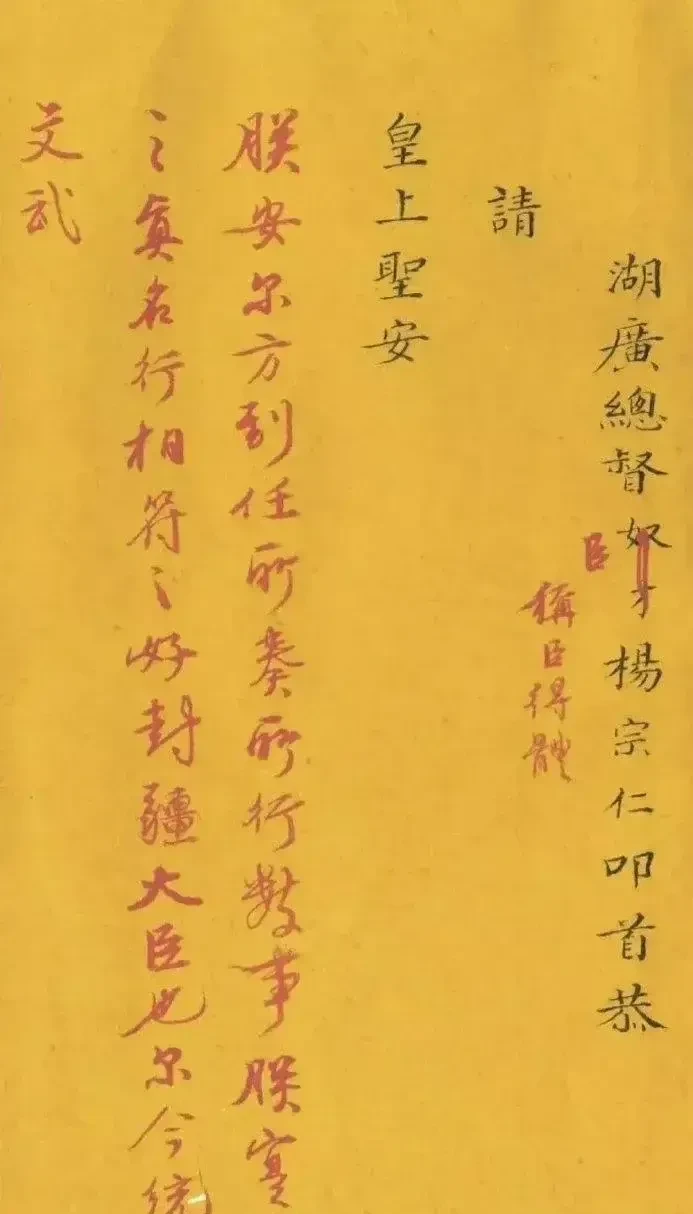 湖廣總督奴才楊宗仁叩首恭
臣
稱臣得體
請
皇上聖安
朕安尔方到任所奏所行數事朕實
之真名行相符之好封疆大臣也尔今統
文武